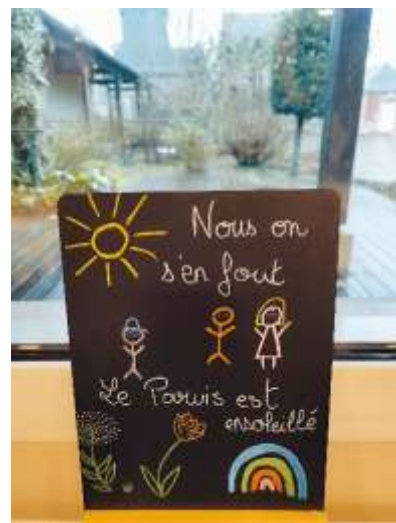 Nous on
s'en fout
Le Parvis est
ensoleillé